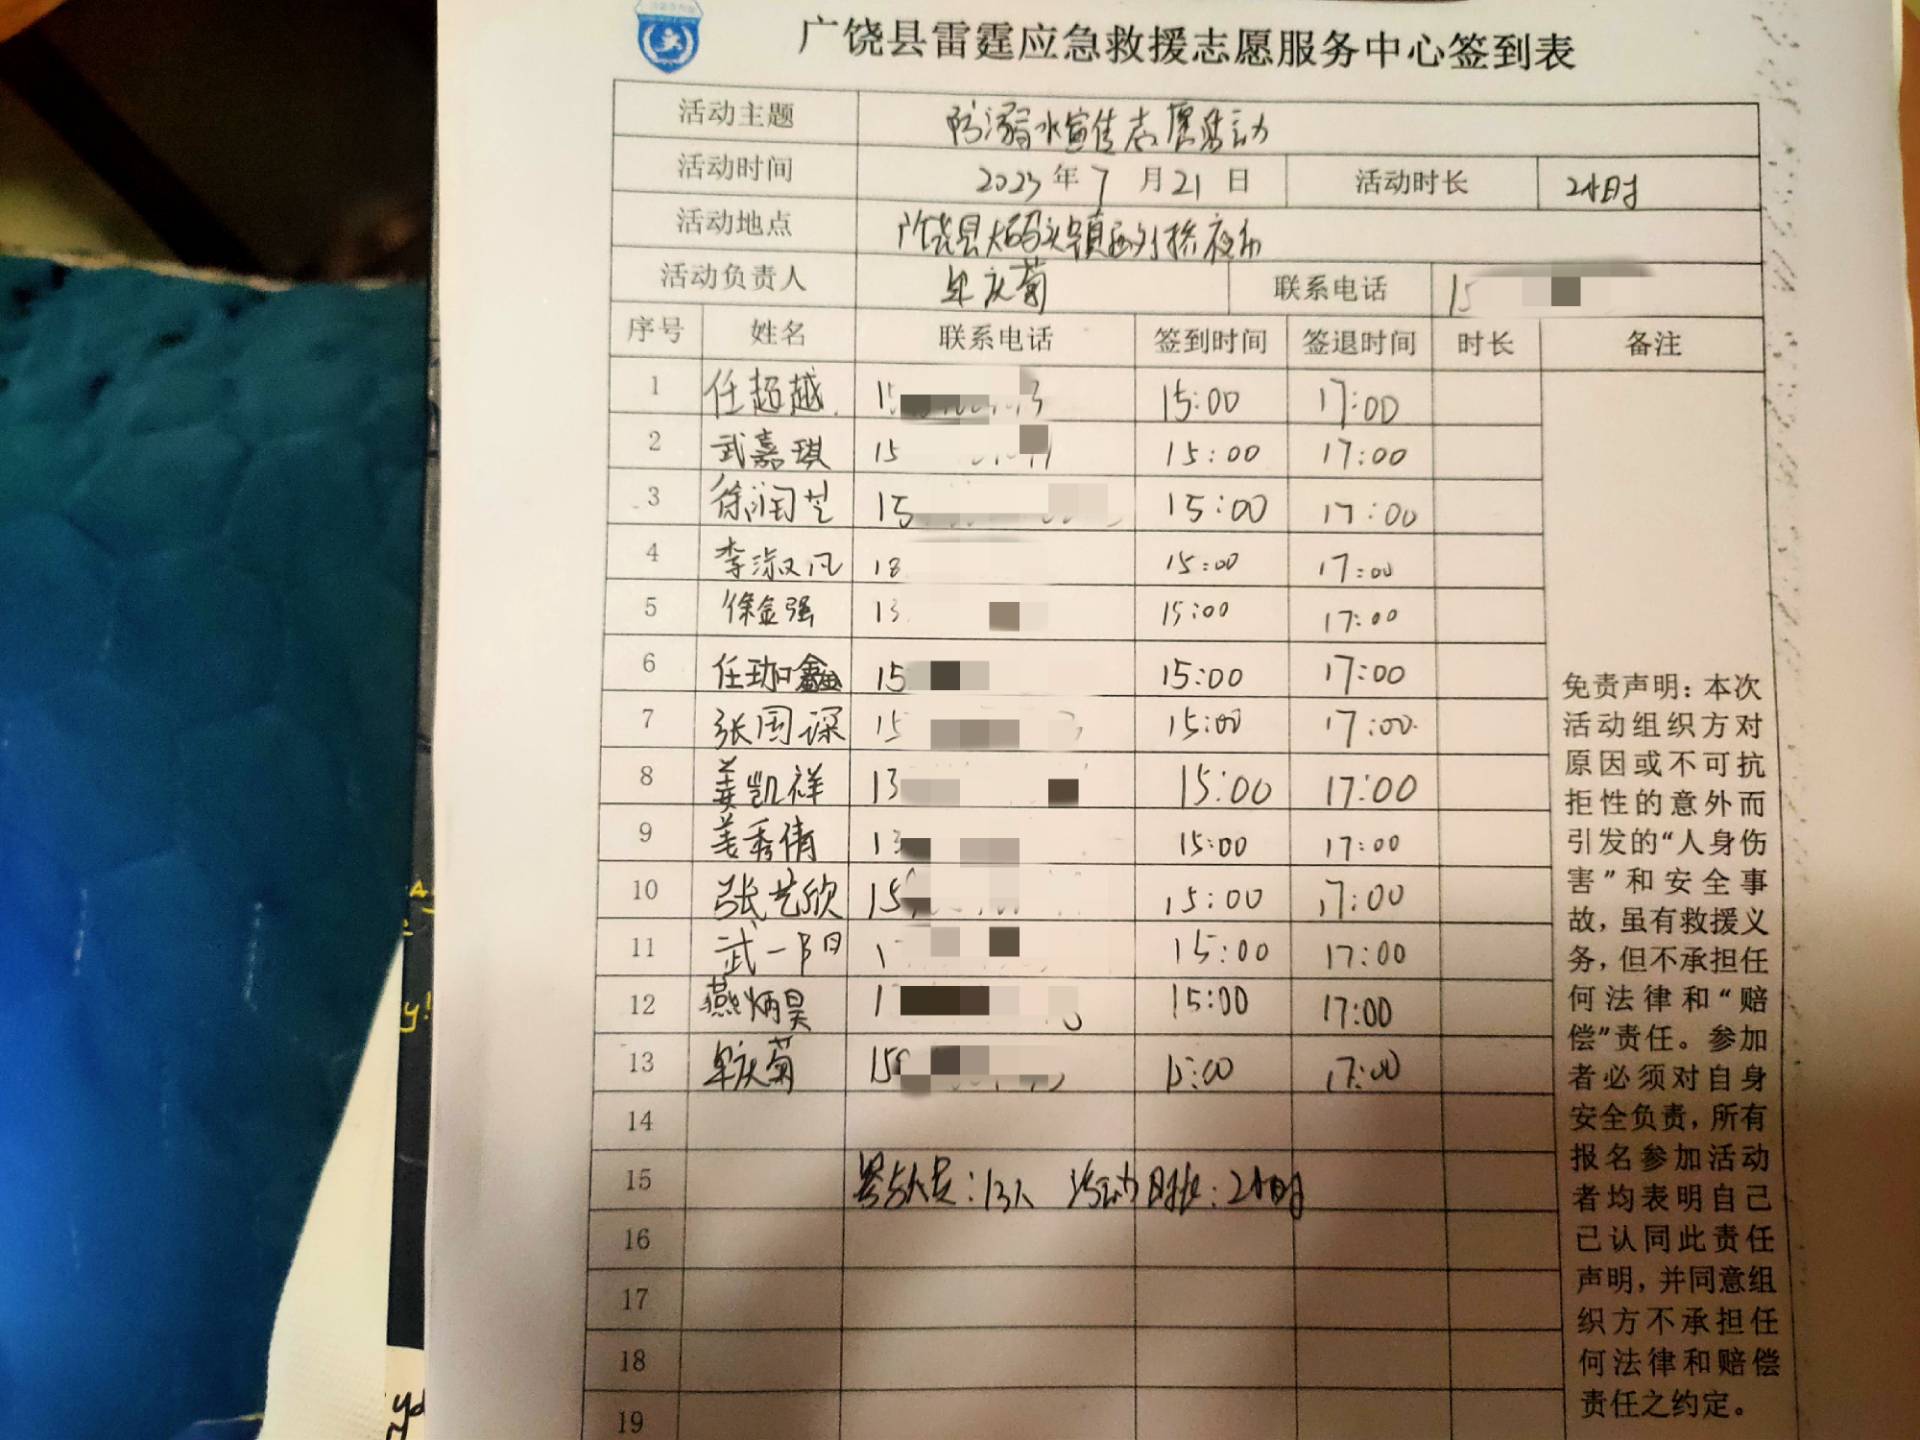 广饶县雷霆应急救援志愿服务中心签到表
活动主题 防溺水宣传志愿活动
活动时间 2023年7月21日 活动时长 2小时
活动地点 广饶县大码头镇西外桥夜市
活动负责人 牟庆菊 联系电话 15
序号 姓名 联系电话 签到时间 签退时间 时长 备注
1 任超越 15 15:00 17:00
2 武嘉琪 15 15:00 17:00
3 徐润芝 15 15:00 17:00
4 李淑凡 18 15:00 17:00
5 徐金强 13 15:00 17:00
6 任珈鑫 15 15:00 17:00
7 张国深 15 15:00 17:00
8 姜凯祥 13 15:00 17:00
9 姜秀倩 13 15:00 17:00
10 张艺欣 15 15:00 17:00
11 武一阳 1 15:00 17:00
12 燕炳昊 1 15:00 17:00
13 牟庆菊 15 15:00 17:00
14
15 参与人员：13人 活动时长：2小时
16
17
18
19
免责声明：本次
活动组织方对
原因或不可抗
拒性的意外而
引发的“人身伤
害”和安全事
故，虽有救援义
务，但不承担任
何法律和“赔
偿”责任。参加
者必须对自身
安全负责，所有
报名参加活动
者均表明自己
已认同此责任
声明，并同意组
织方不承担任
何法律和赔偿
责任之约定。